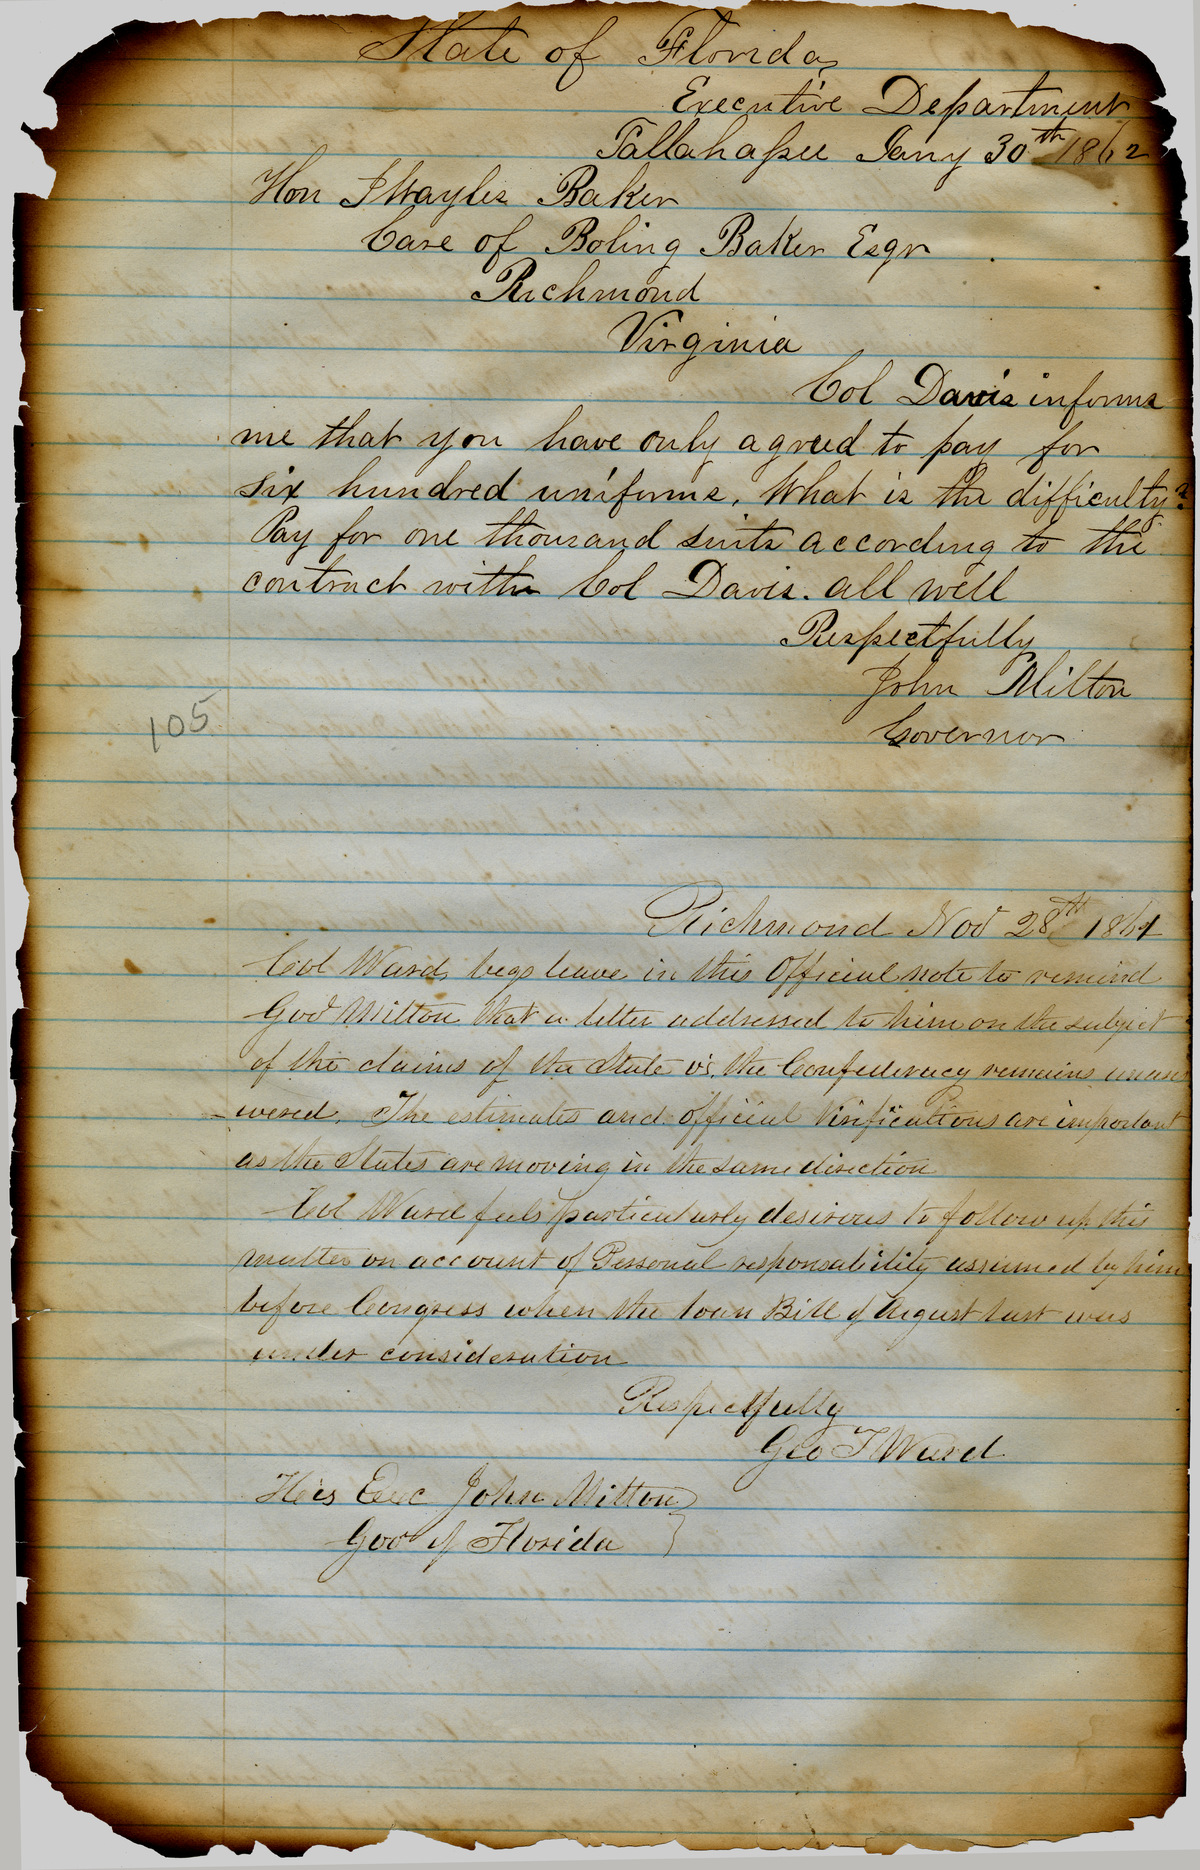 State of Florida
Executive Department
Tallahassee Jany 30th 1862
Hon J Wayles Baker
Care of Boling Baker Esqr
Richmond
Virginia
Col Davis informs
me that you have only agreed to pay for
six hundred uniforms. What is the difficulty?
Pay for one thousand suits according to the
contract with Col Davis. all well
Respectfully
John Milton
Governor
105
Richmond Nov 28th 1861
Col Ward begs leave in this Official note to remind
Gov Milton that a letter addressed to him on the subject
of the claims of the State vs. the Confederacy remains unans
wered. The estimates and official verifications are important
as the States are moving in the same direction
Col Ward feels particularly desirous to follow up this
matter on account of Personal responsability assumed by him
before Congress when the loan Bill of August last was
under consideration
Respectfully
Geo T Ward
His Exc John Milton
Gov of Florida